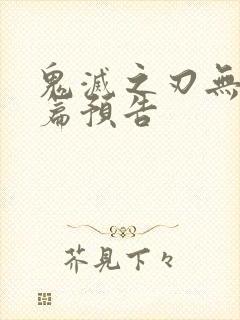 鬼滅之刃無
篇預告
芥見下々